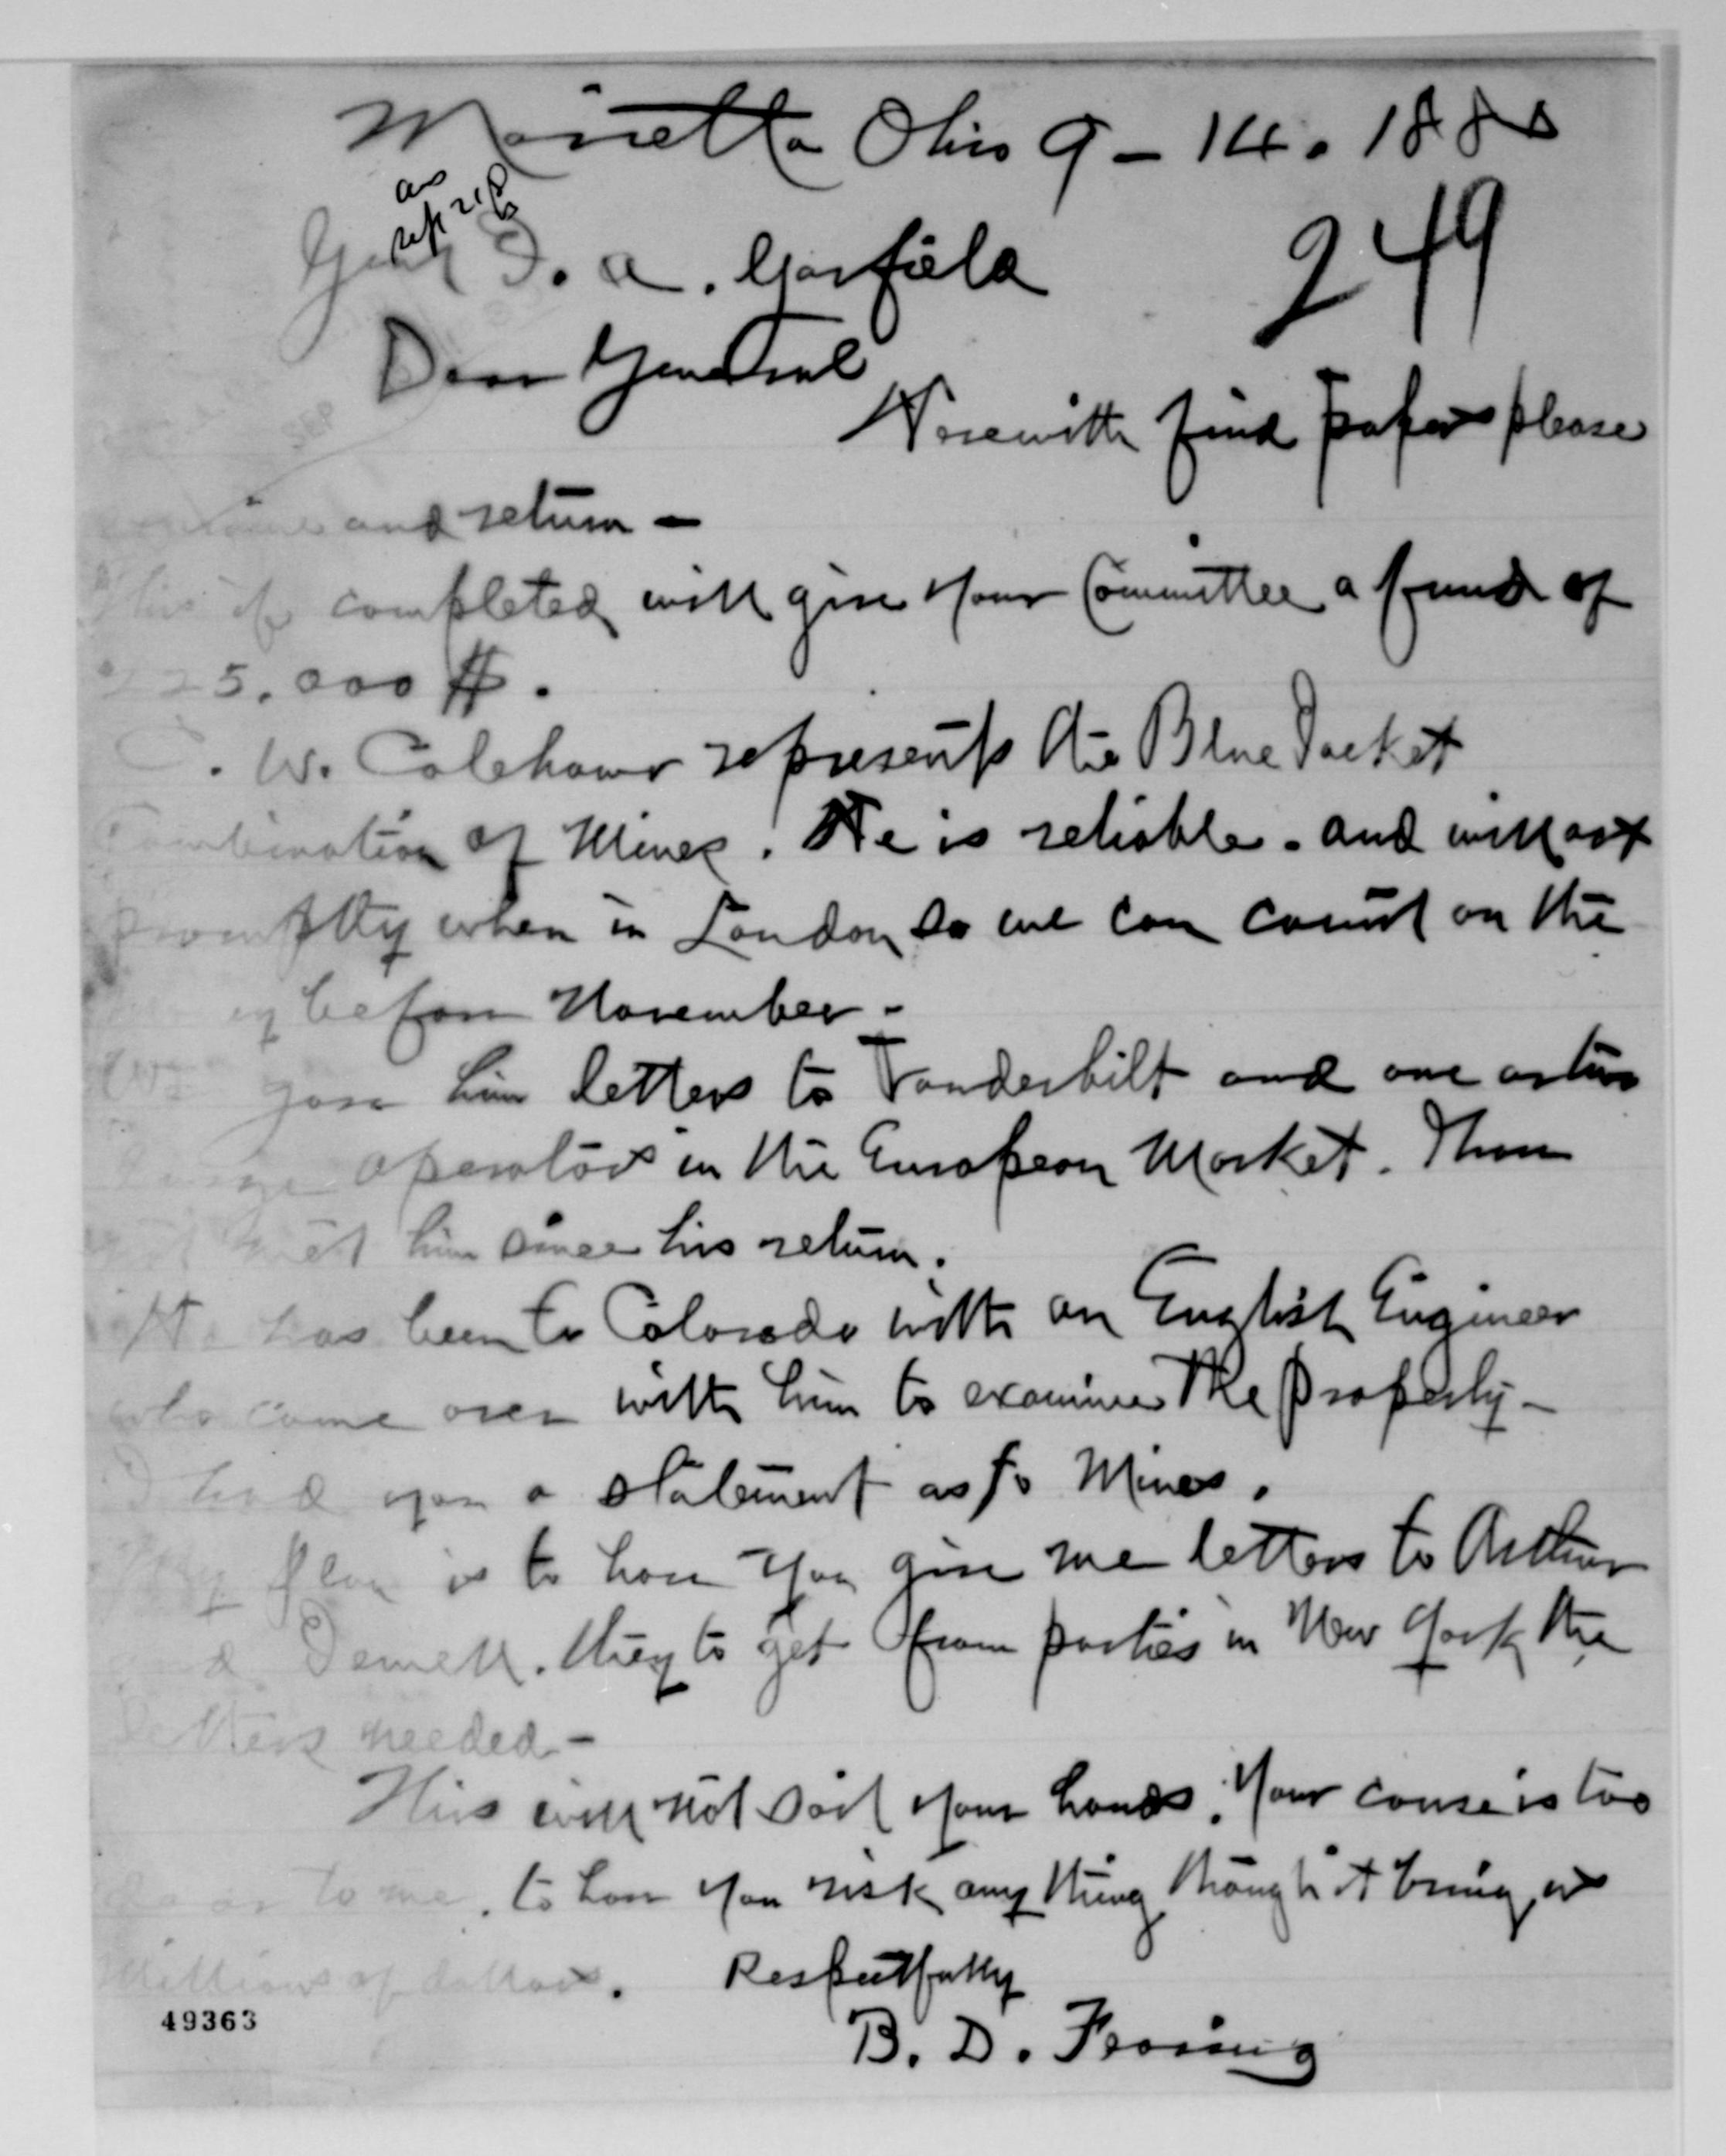 Marietta Ohio 9 - 14. 1880
ans
Sept 21
249
Genl J. A. Garfield
Dear General
Herewith find papers please
examine and return -
This if completed will give your Committee a fund of
225.000 $.
C. W. Colehour represents the Blue Jacket
Combination of Mines. He is reliable. and will act
promptly when in London so we can count on the
before November -
We gave him letters to Vanderbilt and one or two
large operators in the European Market. I have
not met him since his return.
He has been to Colorado with an English Engineer
who came over with him to examine the property -
I had you a statement as to Mines.
My plan is to have you give me letters to Arthur
and Jewell. they to get from parties in New York the
letters needed -
This will not soil your hands. Your cause is too
dear to me. to have you risk any thing though it bring us
Millions of dollars. Respectfully
B. D. Fearing
49363